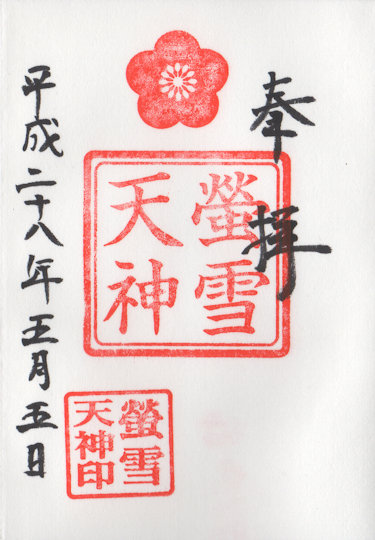 奉拝
螢雪
天神
螢雪
天神印
平成二十八年五月五日